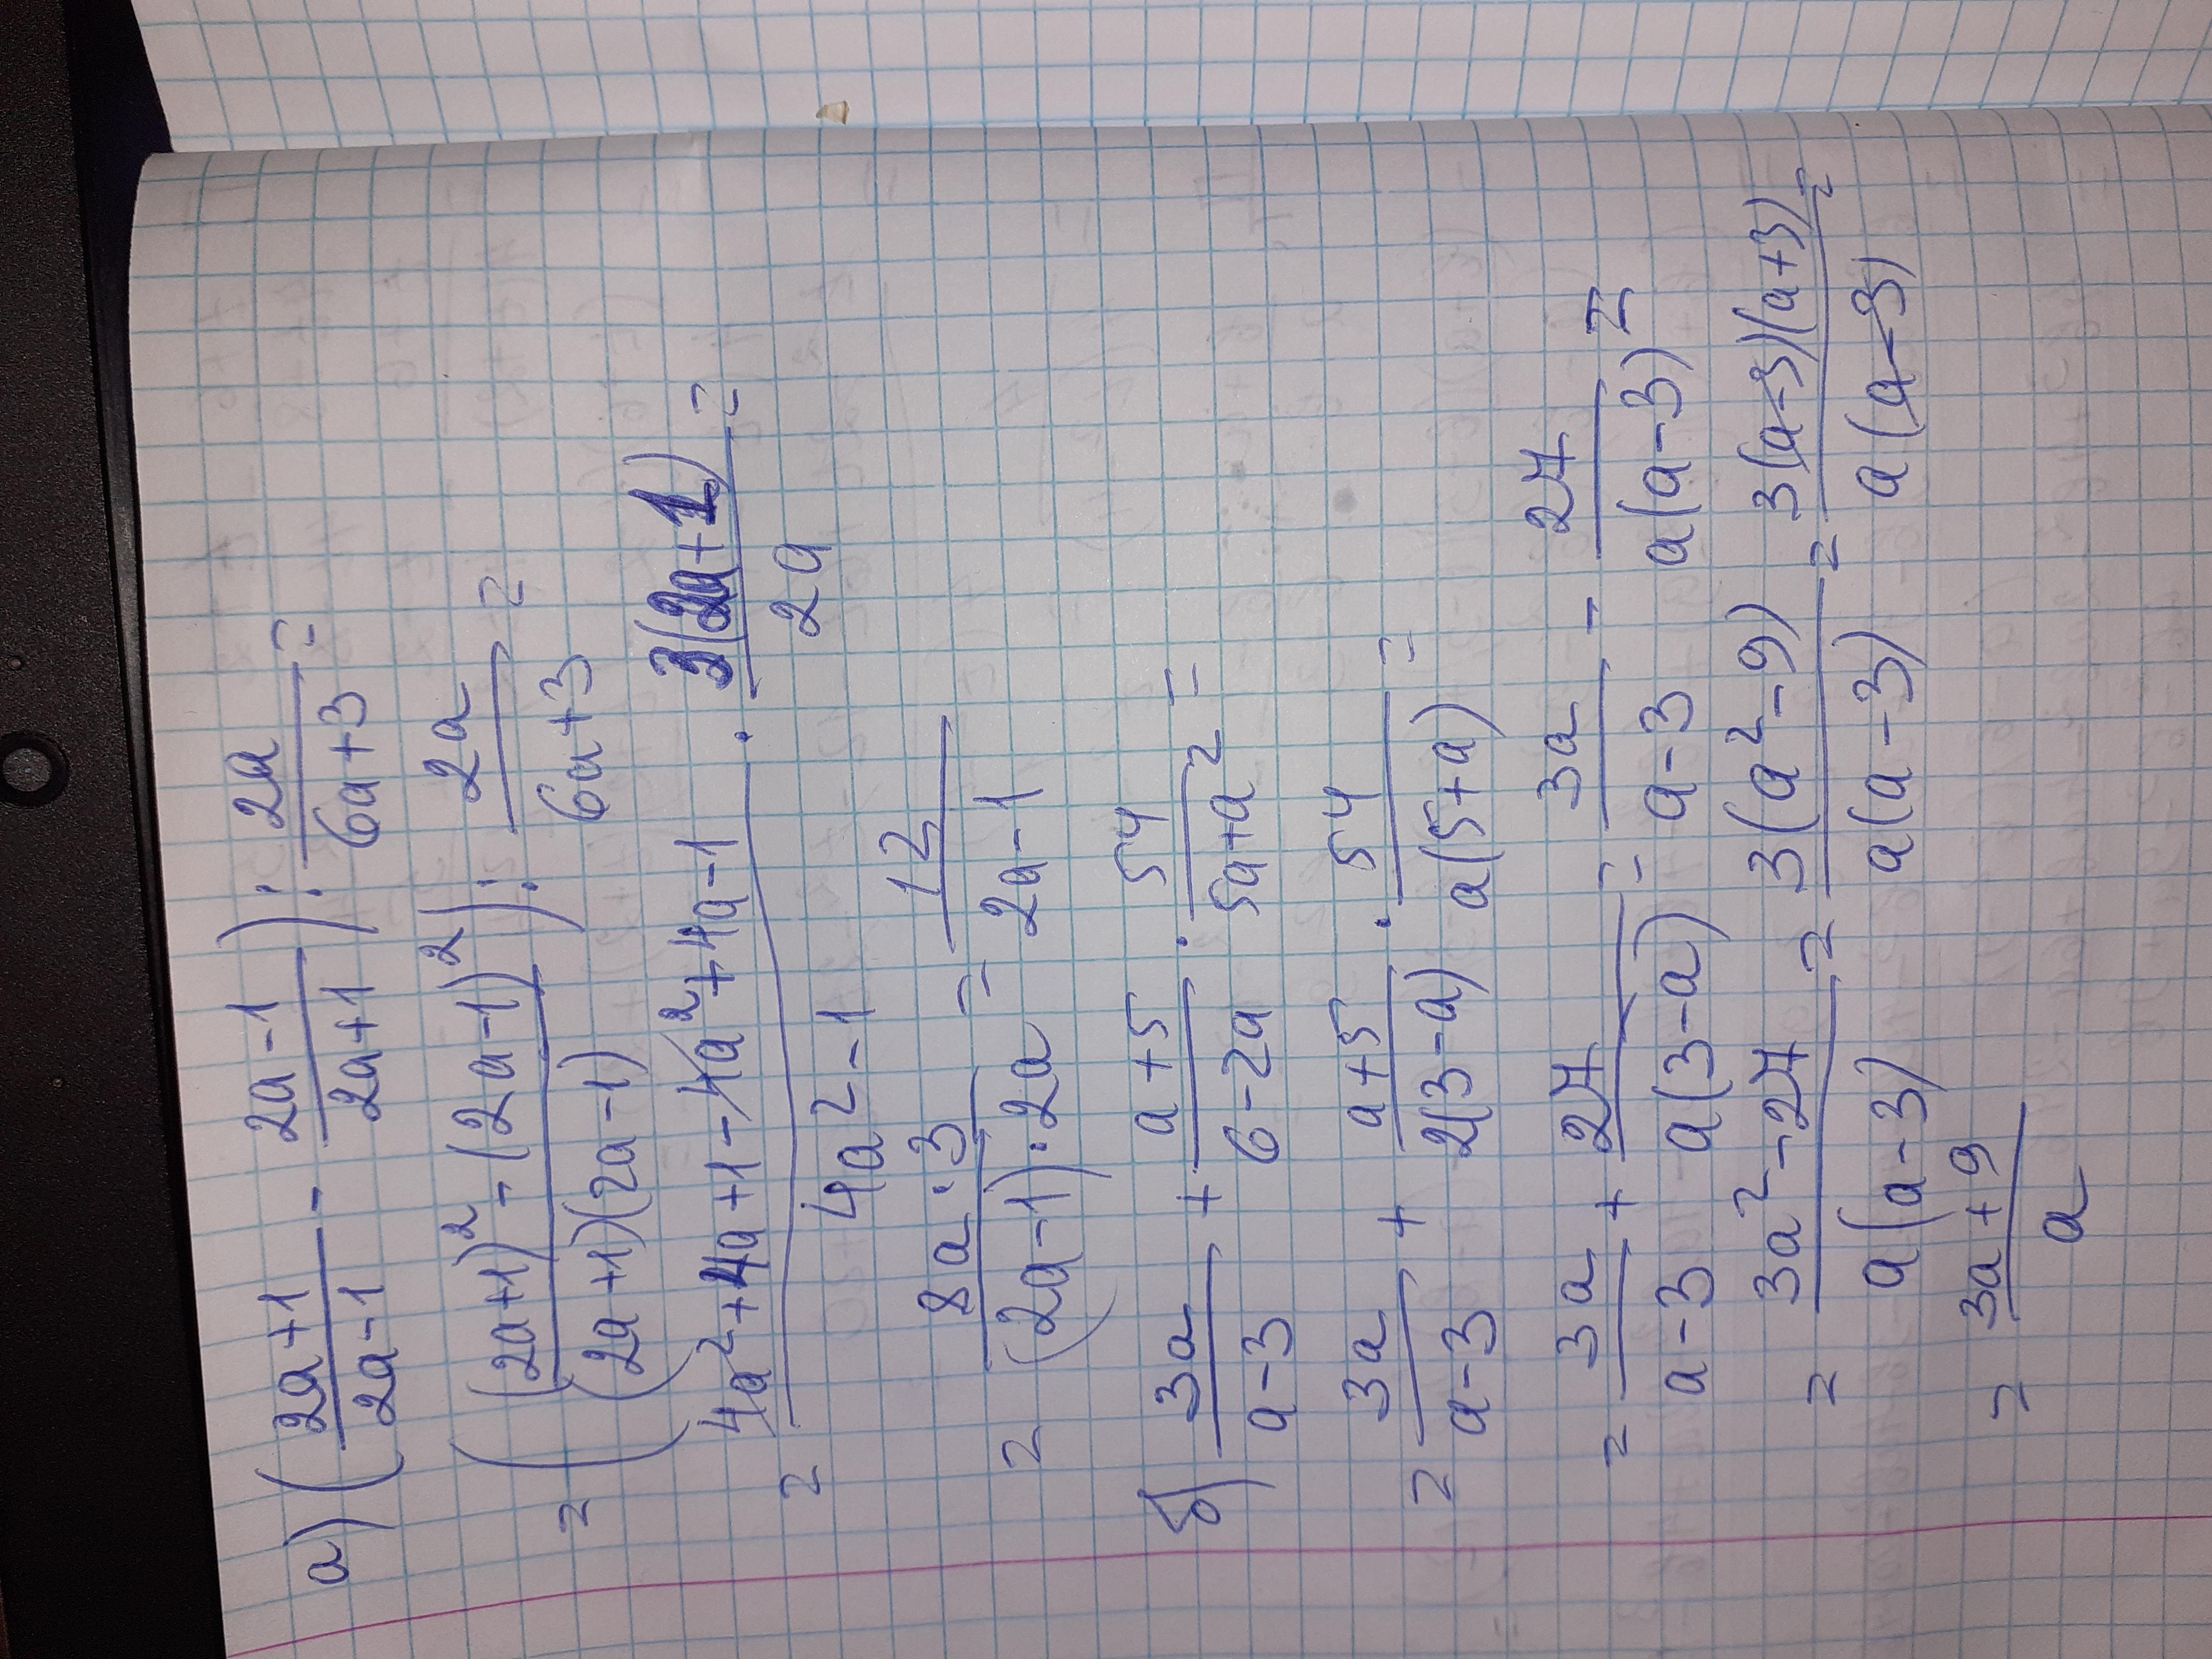 а) ( (2a+1)/(2a-1) - (2a-1)/(2a+1) ) : 2a/(6a+3) =
= ( ((2a+1)² - (2a-1)²)/((2a+1)(2a-1)) ) : 2a/(6a+3) =
= (4a²+4a+1-4a²+4a-1)/(4a²-1) · 3(2a+1)/2a =
= 8a·3/((2a-1)·2a) = 12/(2a-1)
б) 3a/(a-3) + (a+5)/(6-2a) · 54/(5a+a²) =
= 3a/(a-3) + (a+5)/(2(3-a)) · 54/(a(5+a)) =
= 3a/(a-3) + 27/(a(3-a)) = 3a/(a-3) - 27/(a(a-3)) =
= (3a²-27)/(a(a-3)) = 3(a²-9)/(a(a-3)) = 3(a-3)(a+3)/(a(a-3)) =
= (3a+9)/a